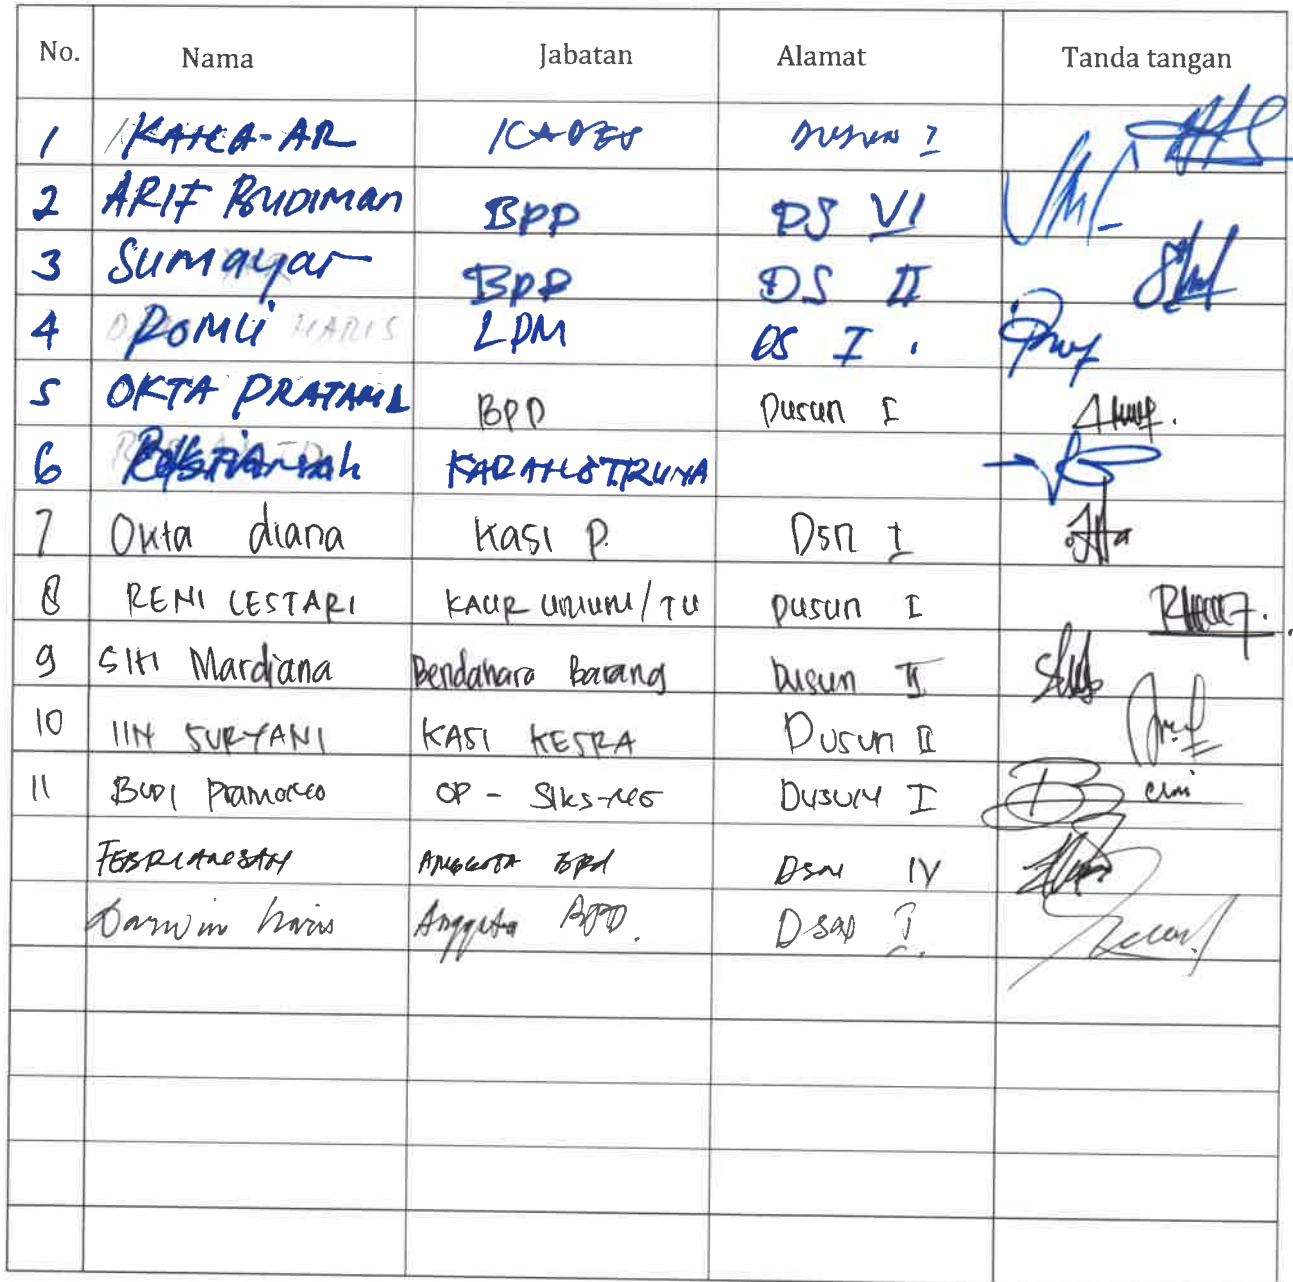 No. Nama Jabatan Alamat Tanda tangan
1 KADES DUSUN I
2 ARIF BUDIMAN BPD DS VI
3 Sumayar BPD DS II
4 ROMLI LPM DS I .
5 OKTA PRATAMA BPD Dusun I
6
7 Okta diana Kasi P. Dsn I
8 RENI LESTARI KAUR UMUM/TU Dusun I
9 Siti Mardiana Bendahara Barang Dusun II
10 IIN SURYANI KASI KESRA Dusun II
11 BUDI OP - SIKS-NG DUSUN I
ANGGOTA BPD Dsn IV
Darwin haris Anggota BPD.